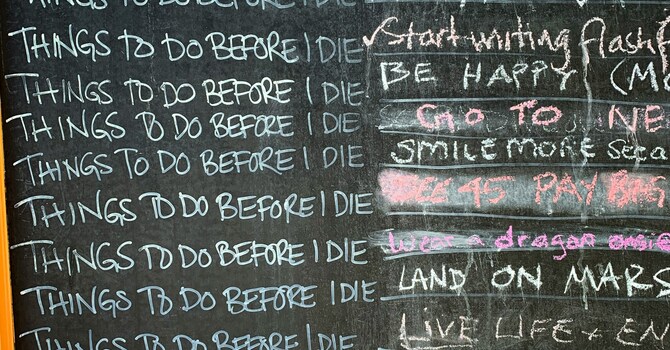 THINGS TO DO BEFORE I DIE
THINGS TO DO BEFORE I DIE Start writing flash
THINGS TO DO BEFORE I DIE BE HAPPY (M
THINGS TO DO BEFORE I DIE GO TO NE
THINGS TO DO BEFORE I DIE SMILE MORE
THINGS TO DO BEFORE I DIE 45 PAY
THINGS TO DO BEFORE I DIE Wear a dragon onesie
THINGS TO DO BEFORE I DIE LAND ON MARS
THINGS TO DO BEFORE I DIE LIVE LIFE + EN